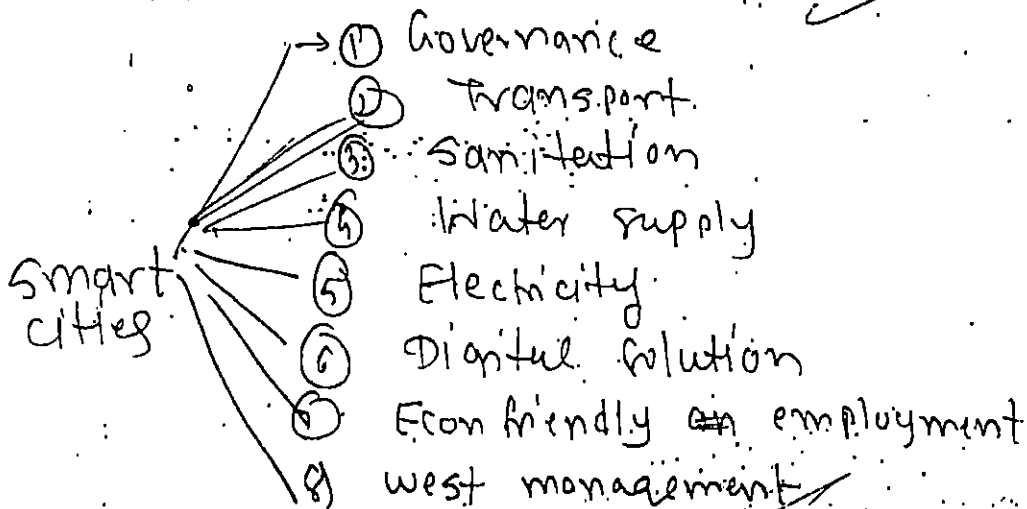 → ① Governance
② Transport.
③ Sanitation
④ Water supply
smart cities
⑤ Electricity
⑥ Digital solution
Econ friendly employment
8) west management